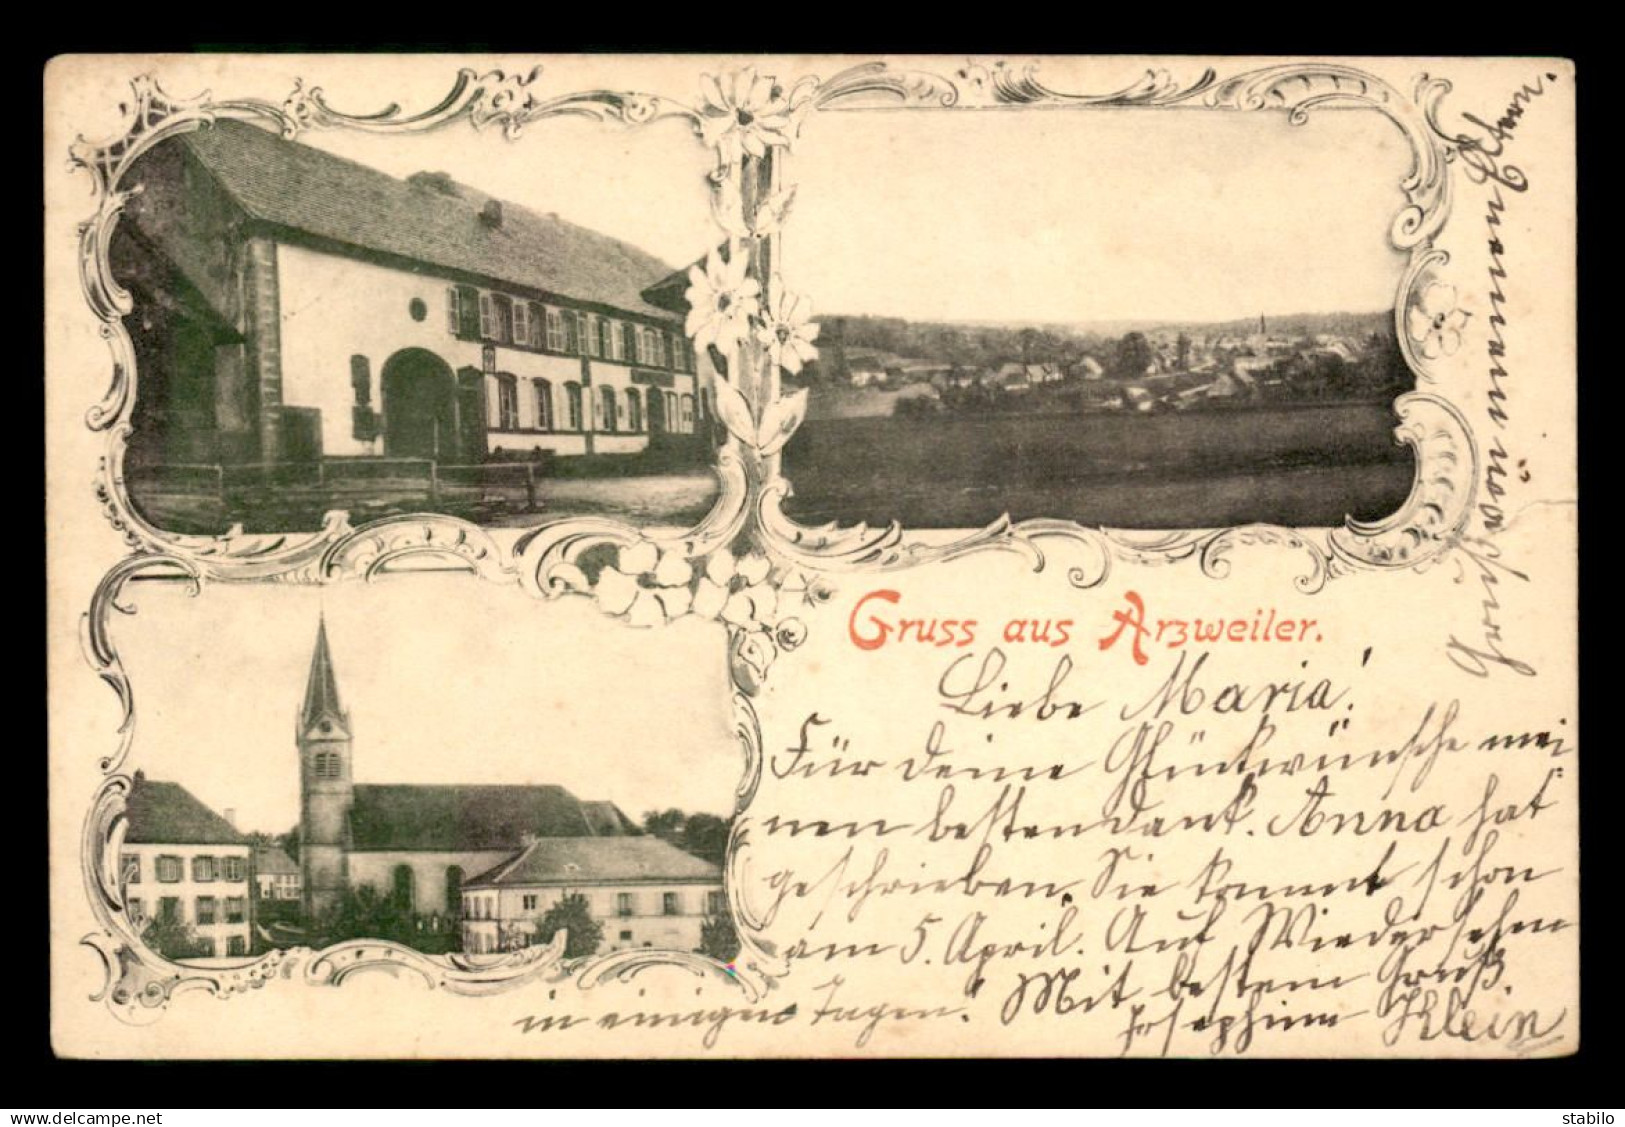 Gruss aus Arzweiler.
Liebe Maria!
Für deine Glückwünsche mei
nen besten Dank. Anna hat
geschrieben. Sie kommt schon
am 5. April. Auf Wiedersehen
in einigen Tagen! Mit bestem Gruß.
Josephine Klein
www.delcampe.net
stabilo